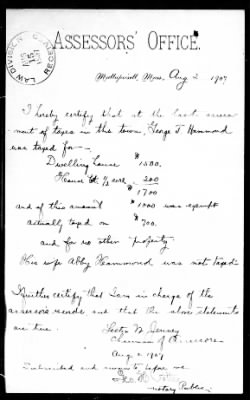 LAW DIVISION
AUG 15 1907
ASSESSORS' OFFICE.
Mass, Aug 2 1907
I hereby certify that at the last assess
ment of taxes in this town, George T. Hammond
was taxed for—
Dwelling house $1500.
House lot 1/2 acre 200
$1700
and of this amount $1000 was exempt
actually taxed on $700.
and for no other property
His wife Abby Hammond was not taxed
I further certify that I am in charge of the
assessors records and that the above statements
are true.
Chairman of Assessors
Aug 2 1907
Subscribed and sworn to before me
Notary Public